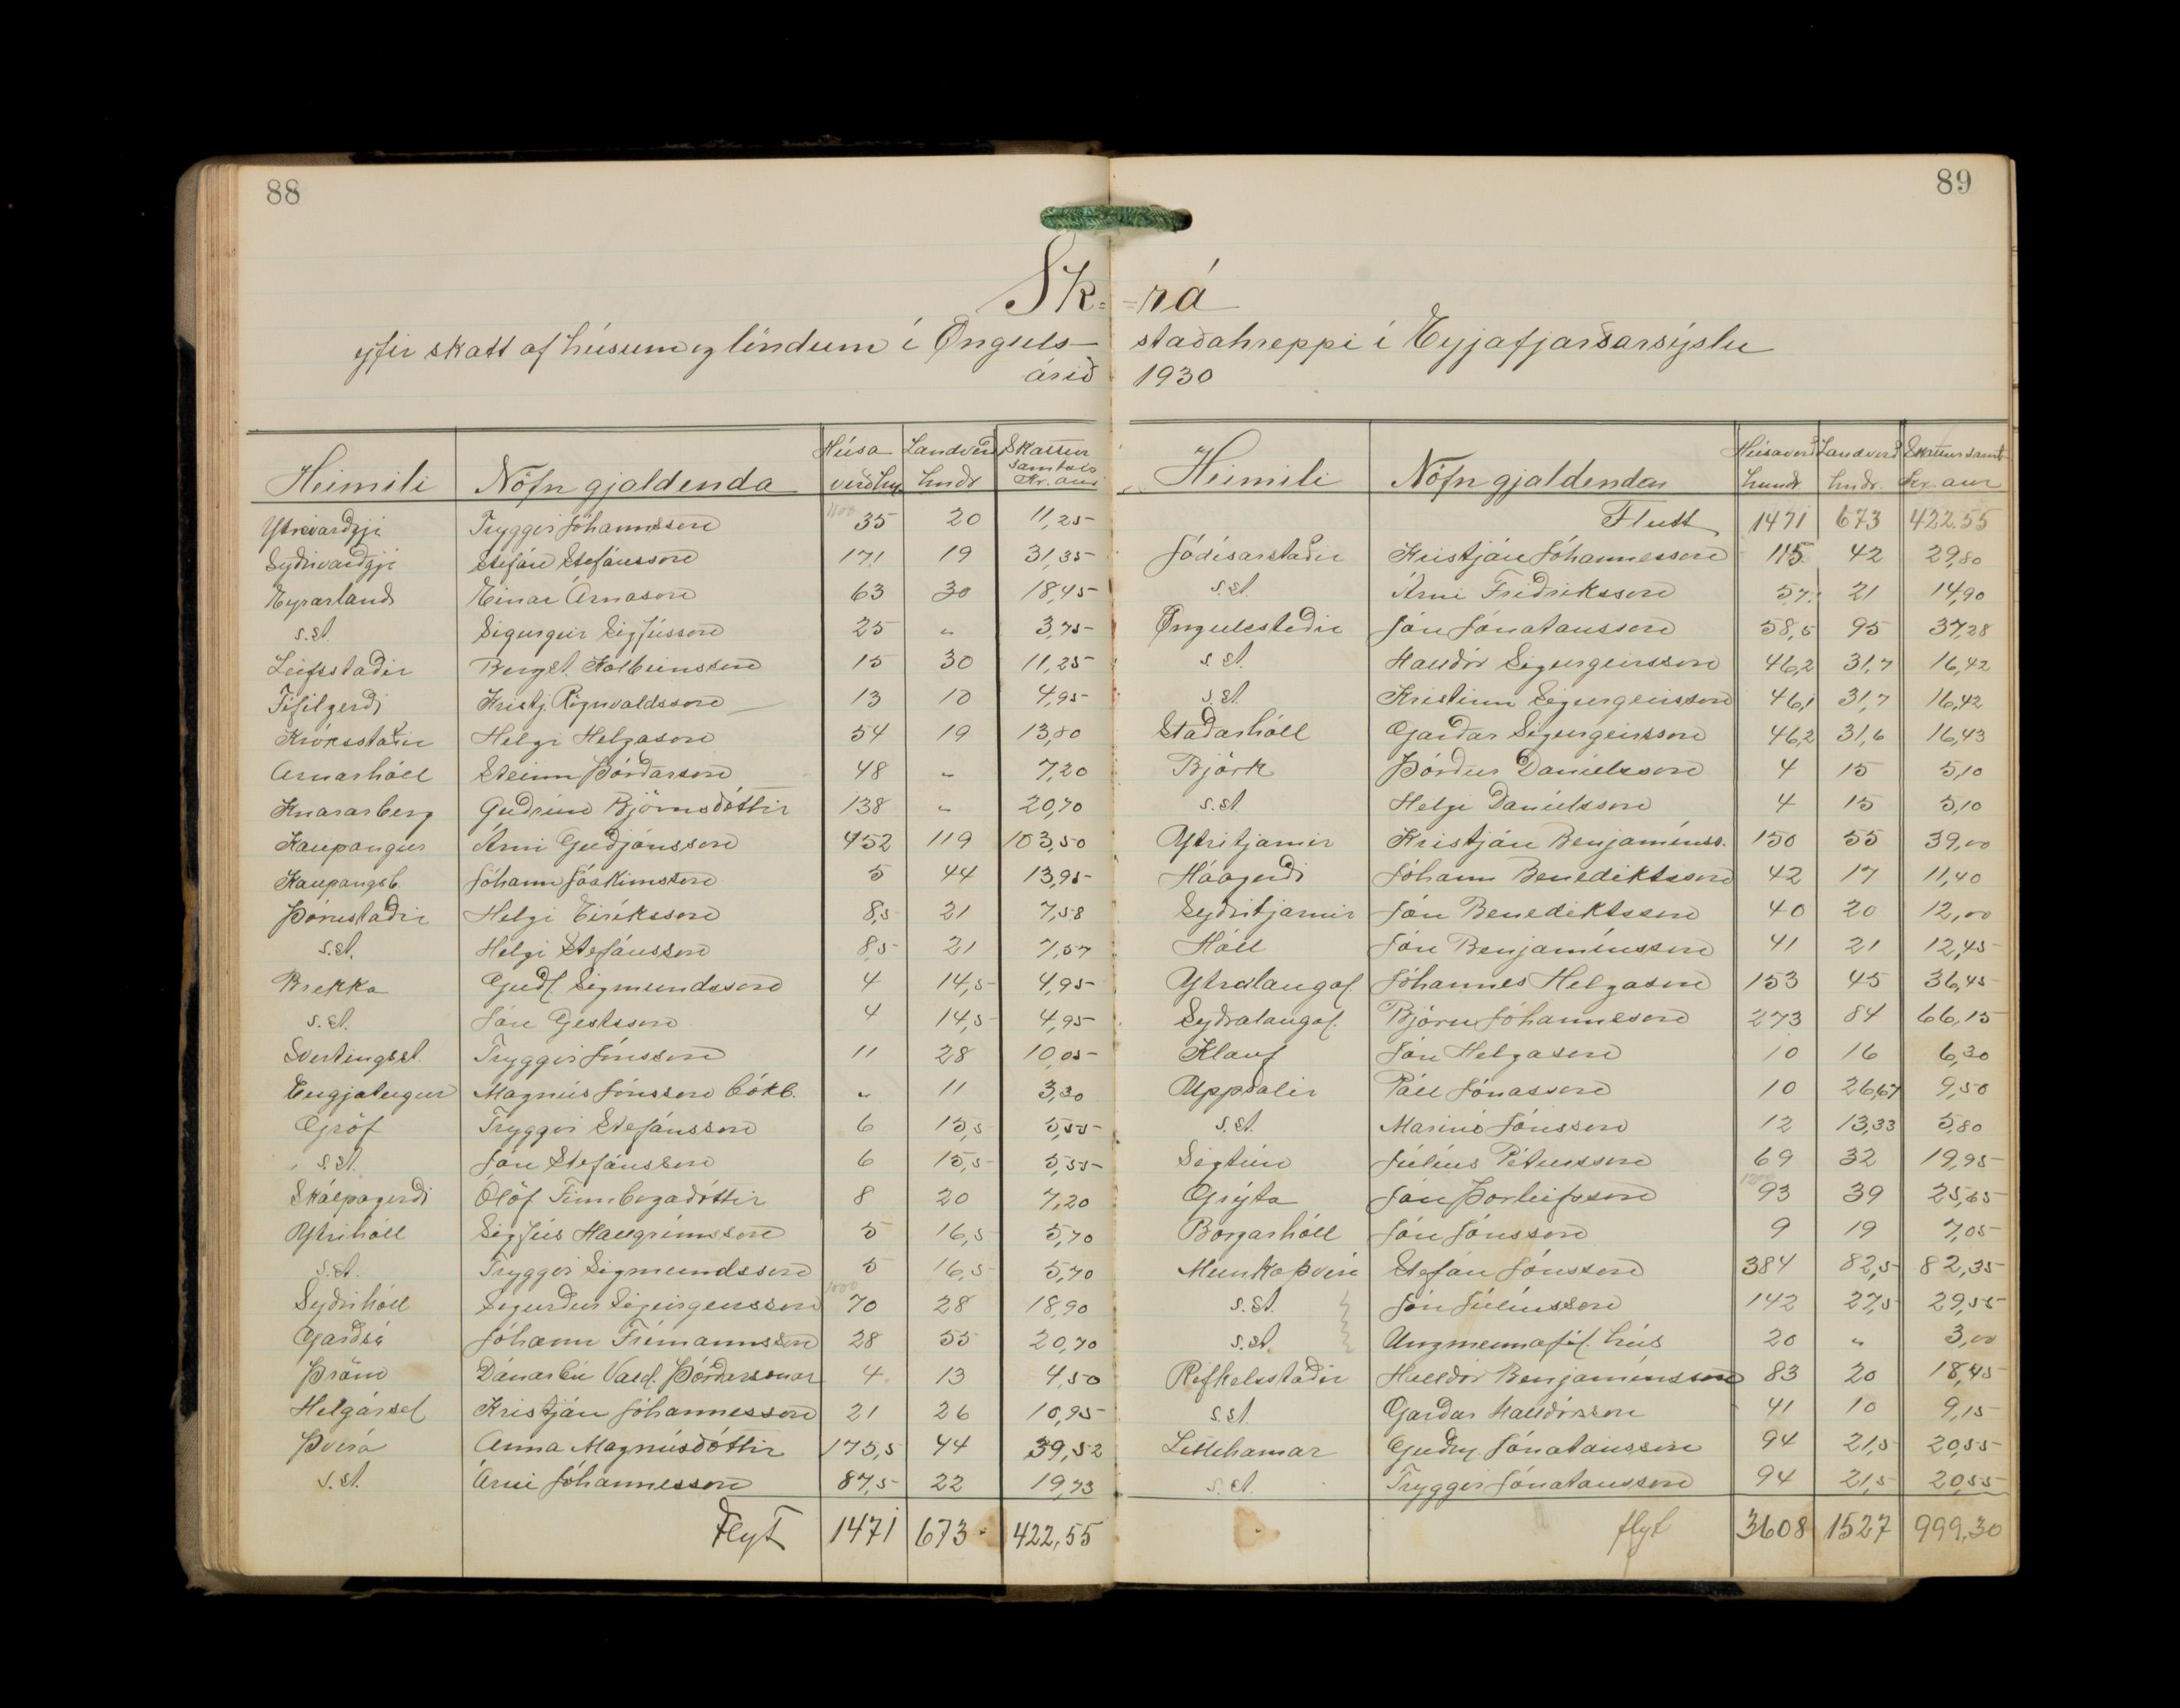 88
89
Sk- -rá
yfir skatt af húsum og löndum í Önguls- staðahreppi í Eyjafjarðarsýslu
árið 1930
Heimili Nöfn gjaldenda Húsa verð hndr. Landverð hndr Skattur samtals Kr. aur
Ytrivarðgjá Tryggvi Jóhannsson 35 20 11,25
Syðrivarðgjá Stefán Stefánsson 171 19 31,35
Eyrarland Einar Árnason 63 30 18,45
s.st. Sigurgeir Sigfússon 25 " 3,75
Leifsstaðir Bergst. Kolbeinsson 15 30 11,25
Fífilgerði Kristj. Rögnvaldsson 13 10 4,95
Króksstaðir Helgi Helgason 54 19 13,80
Arnarhóll Steinn Þórðarson 48 " 7,20
Knararberg Guðrún Björnsdóttir 138 " 20,70
Kaupangur Árni Guðjónsson 452 119 103,50
Kaupangsb. Jóhann Jóakimsson 5 44 13,95
Þórustaðir Helgi Eiríksson 8,5 21 7,58
s.st. Helgi Stefánsson 8,5 21 7,57
Brekka Guðl. Sigmundsson 4 14,5 4,95
s.st. Jón Gestsson 4 14,5 4,95
Svertingsst. Tryggvi Jónsson 11 28 10,05
Engjatungur Magnús Jónsson bókb. " 11 3,30
Gröf Tryggvi Stefánsson 6 15,5 5,55
s.st. Jón Stefánsson 6 15,5 5,55
Skálpagerði Ólöf Finnbogadóttir 8 20 7,20
Ytrihóll Sigfús Hallgrímsson 5 16,5 5,70
s.st. Tryggvi Sigmundsson 5 16,5 5,70
Syðrihóll Sigurður Sigurgeirsson 70 28 18,90
Garðsá Jóhann Frímannsson 28 55 20,70
Þröm Dánarbú Vald. Þórðarsonar 4 13 4,50
Helgársel Kristján Jóhannesson 21 26 10,95
Þverá Anna Magnúsdóttir 175,5 44 39,52
s.st. Árni Jóhannesson 87,5 22 19,73
Flyt 1471 673 422,55
Heimili Nöfn gjaldenda Húsaverð hundr. Landverð hndr. Skattur samt. Kr. aur
Flutt 1471 673 422.55
Jódísarstaðir Kristján Jóhannesson 115 42 29,80
s.st. Árni Friðriksson 57 21 14,90
Öngulsstaðir Jón Jónatansson 58,5 95 37,28
s.st. Halldór Sigurgeirsson 46,2 31,7 16,42
s.st. Kristinn Sigurgeirsson 46,1 31,7 16,42
Staðarhóll Garðar Sigurgeirsson 46,2 31,6 16,43
Björk Þórður Daníelsson 4 15 5,10
s.st. Helgi Daníelsson 4 15 5,10
Ytritjarnir Kristján Benjamínss. 150 55 39,00
Háagerði Jóhann Benediktsson 42 17 11,40
Syðritjarnir Jón Benediktsson 40 20 12,00
Hóll Jón Benjamínsson 41 21 12,45
Ytralaugal. Jóhannes Helgason 153 45 36,45
Syðralaugal. Björn Jóhannsson 273 84 66,15
Klauf Jón Helgason 10 16 6,30
Uppsalir Páll Jónasson 10 26,67 9,50
s.st. Marinó Jónsson 12 13,33 5,80
Sigtún Júlíus Pétursson 69 32 19,95
Grýta Jón Þorleifsson 93 39 25,65
Borgarhóll Jón Jónsson 9 19 7,05
Munkaþverá Stefán Jónsson 384 82,5 82,35
s.st. Jón Júlíusson 142 27,5 29,55
s.st. Ungmennafél. hús 20 " 3,00
Rifkelsstaðir Halldór Benjamínsson 83 20 18,45
s.st. Garðar Halldórsson 41 10 9,15
Litlihamar Guðm. Jónatansson 94 21,5 20,55
s.st. Tryggvi Jónatansson 94 21,5 20,55
flyt 3608 1527 999,30